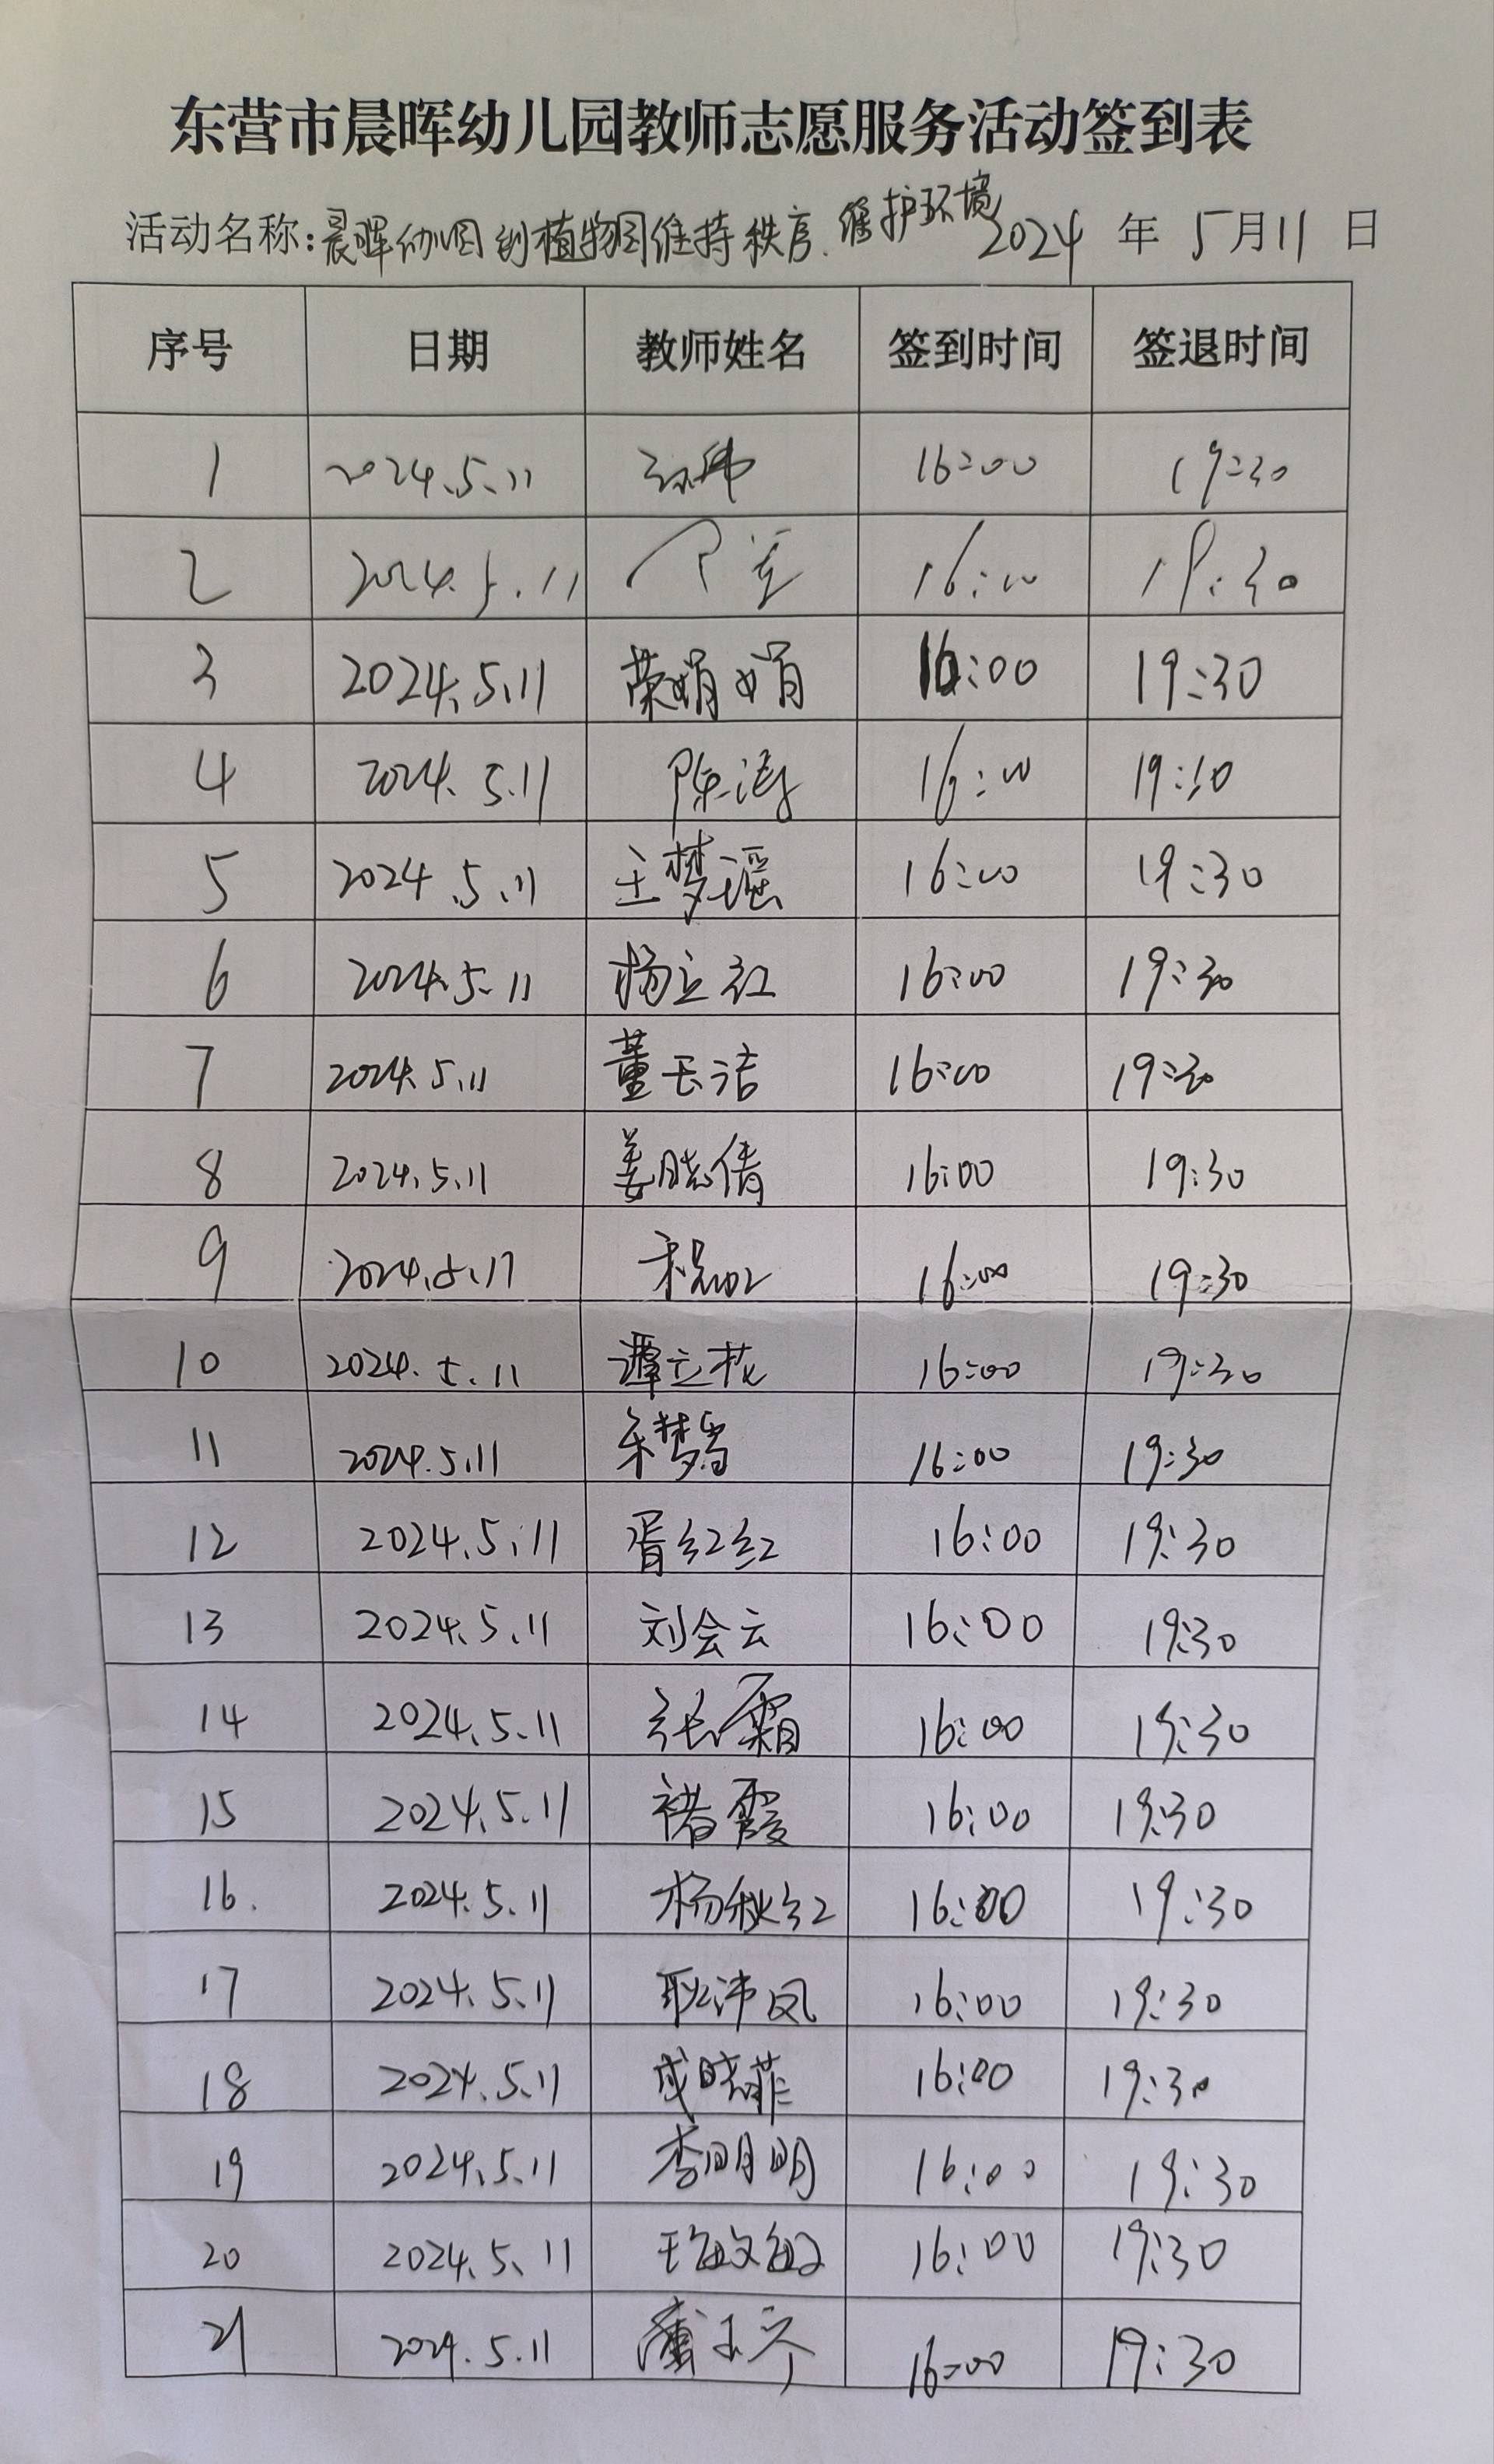 东营市晨晖幼儿园教师志愿服务活动签到表
活动名称:晨晖幼儿园到植物园维持秩序.维护环境 2024 年 5月11 日
序号 日期 教师姓名 签到时间 签退时间
1 2024.5.11 16:00 19:30
2 2024.5.11 16:00 19:30
3 2024.5.11 荣娟娟 16:00 19:30
4 2024.5.11 陈涛 16:00 19:30
5 2024.5.11 王梦瑶 16:00 19:30
6 2024.5.11 杨立红 16:00 19:30
7 2024.5.11 董玉洁 16:00 19:30
8 2024.5.11 姜晓倩 16:00 19:30
9 2024.5.11 16:00 19:30
10 2024.5.11 谭立花 16:00 19:30
11 2024.5.11 16:00 19:30
12 2024.5.11 胥红红 16:00 19:30
13 2024.5.11 刘会云 16:00 19:30
14 2024.5.11 张霜 16:00 19:30
15 2024.5.11 褚霞 16:00 19:30
16. 2024.5.11 杨秋红 16:00 19:30
17 2024.5.11 耿沛凤 16:00 19:30
18 2024.5.11 成晓菲 16:00 19:30
19 2024.5.11 李明明 16:00 19:30
20 2024.5.11 王敏敏 16:00 19:30
21 2024.5.11 16:00 19:30